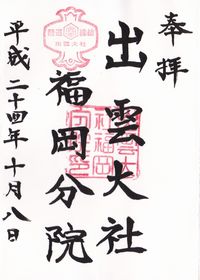 奉拝
出雲大社
福岡分院
平成二十四年十月八日